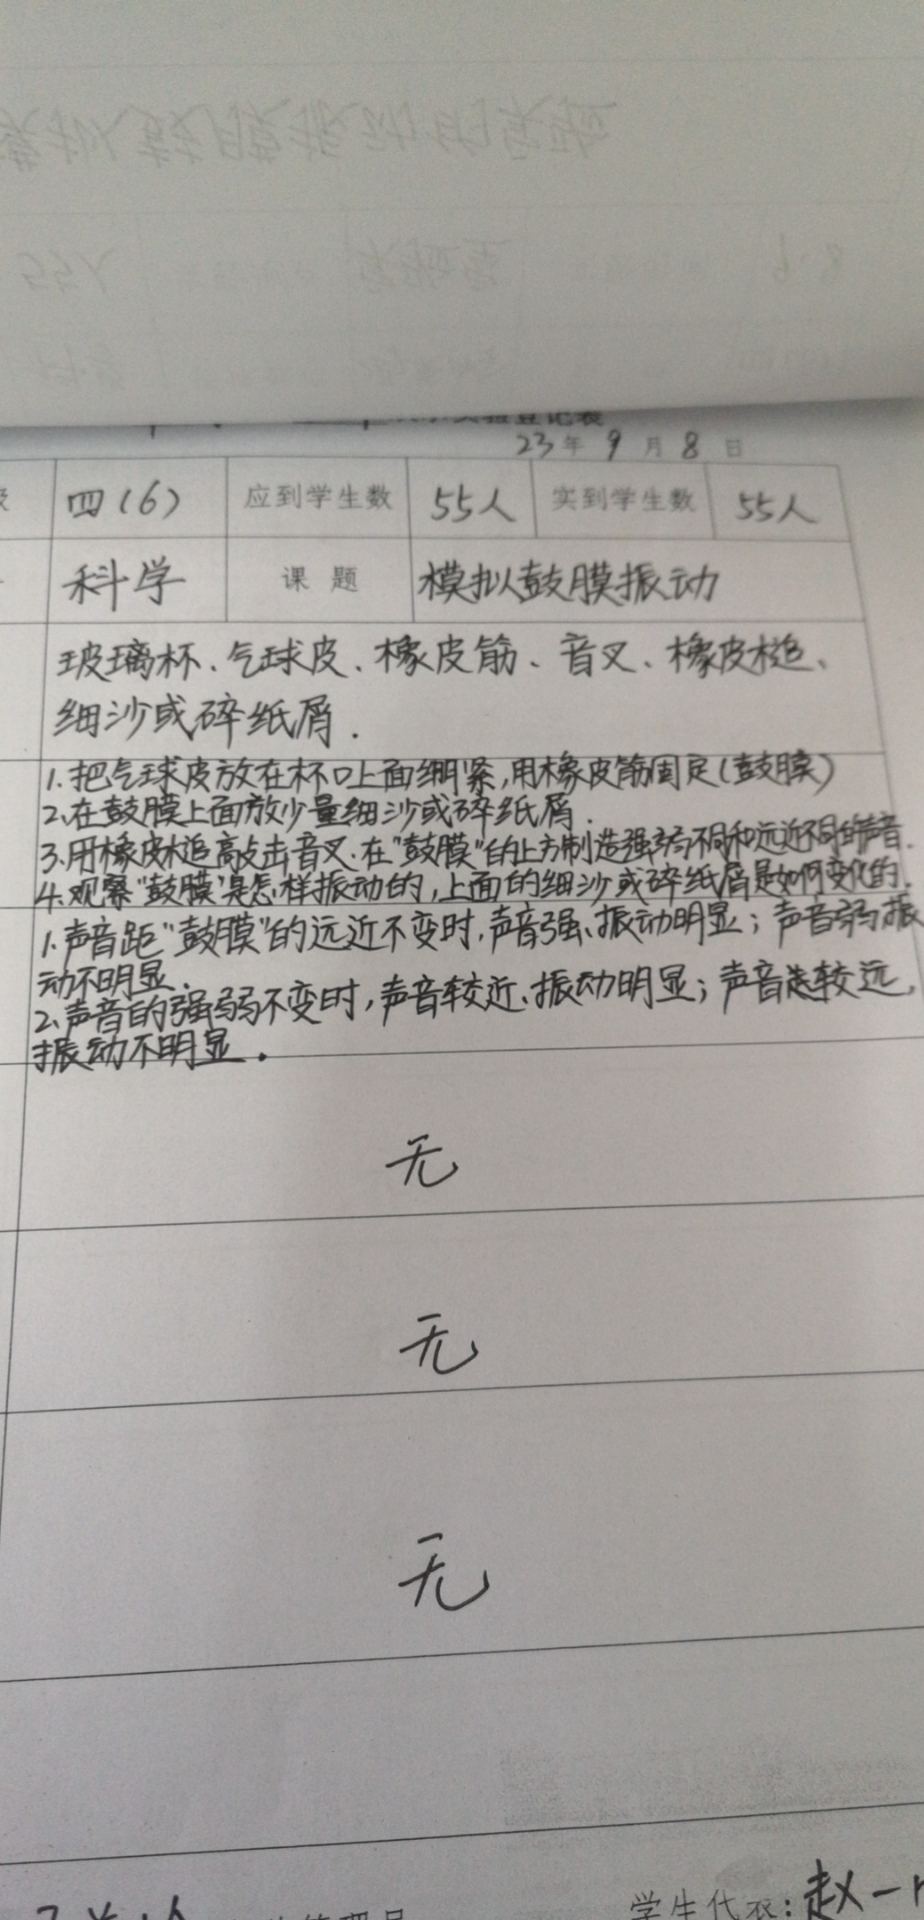 实验登记表
23年9月8日
四(6) 应到学生数 55人 实到学生数 55人
科学 课题 模拟鼓膜振动
玻璃杯、气球皮、橡皮筋、音叉、橡皮槌、
细沙或碎纸屑.
1.把气球皮放在杯口上面绷紧,用橡皮筋固定(鼓膜)
2.在鼓膜上面放少量细沙或碎纸屑.
3.用橡皮槌敲击音叉.在"鼓膜"的上方制造强弱不同和远近不同的声音.
4.观察"鼓膜"是怎样振动的,上面的细沙或碎纸屑是如何变化的.
1.声音距"鼓膜"的远近不变时,声音强、振动明显;声音弱振
动不明显.
2.声音的强弱不变时,声音较近、振动明显;声音较远,
振动不明显.
无
无
无
管理员 学生代表:赵一